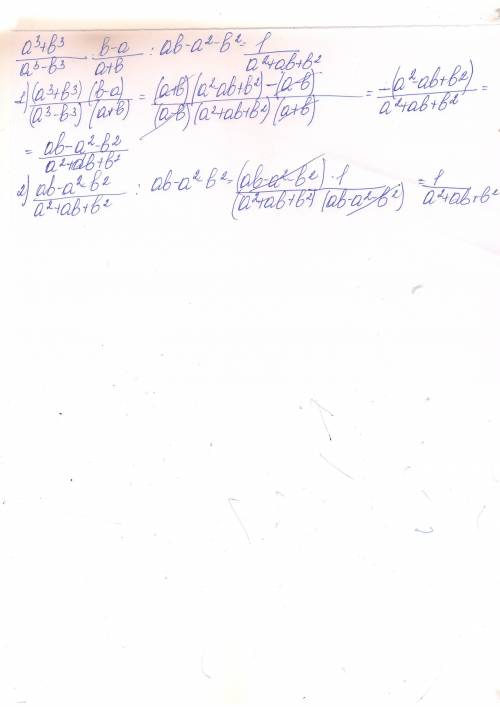 a³+b³/a³-b³ · b-a/a+b : ab-a²-b²= 1/a²+ab+b²
1) (a³+b³)(b-a)/(a³-b³)(a+b) = (a+b)(a²-ab+b²)-(a-b)/(a-b)(a²+ab+b²)(a+b) = -(a²-ab+b²)/a²+ab+b² =
= ab-a²-b²/a²+ab+b²
2) ab-a²-b²/a²+ab+b² : ab-a²-b²= (ab-a²-b²)·1/(a²+ab+b²)(ab-a²-b²) = 1/a²+ab+b²